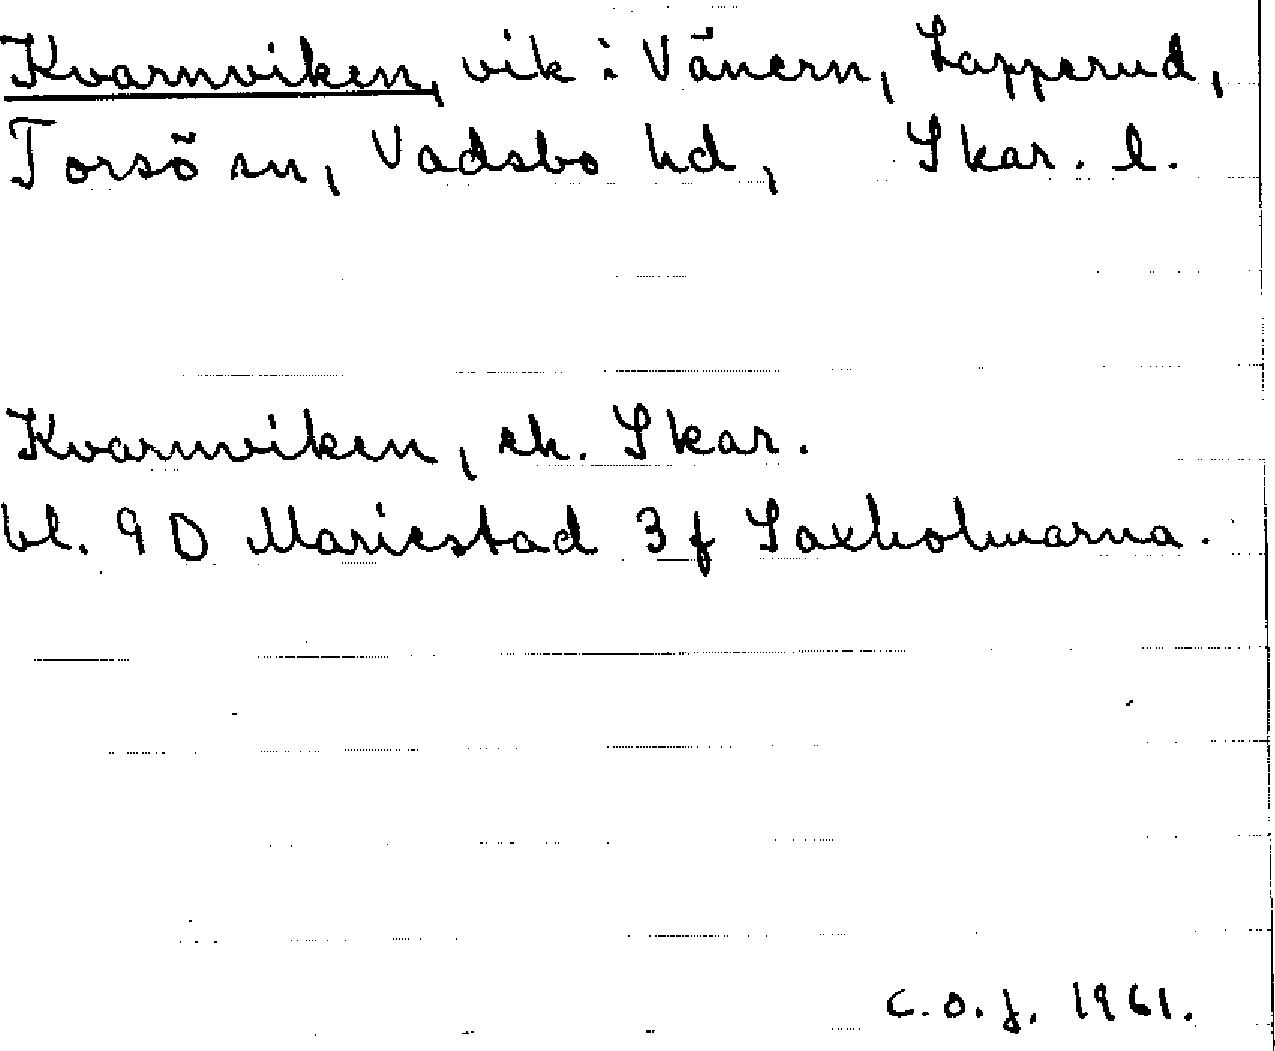 Kvarnviken, vik i Vänern, Lapperud,
Torsö sn, Vadsbo hd, Skar. l.
Kvarnviken, ek. Skar.
bl. 9 D Mariestad 3 f Saxholmarna.
C.O.J. 1961.